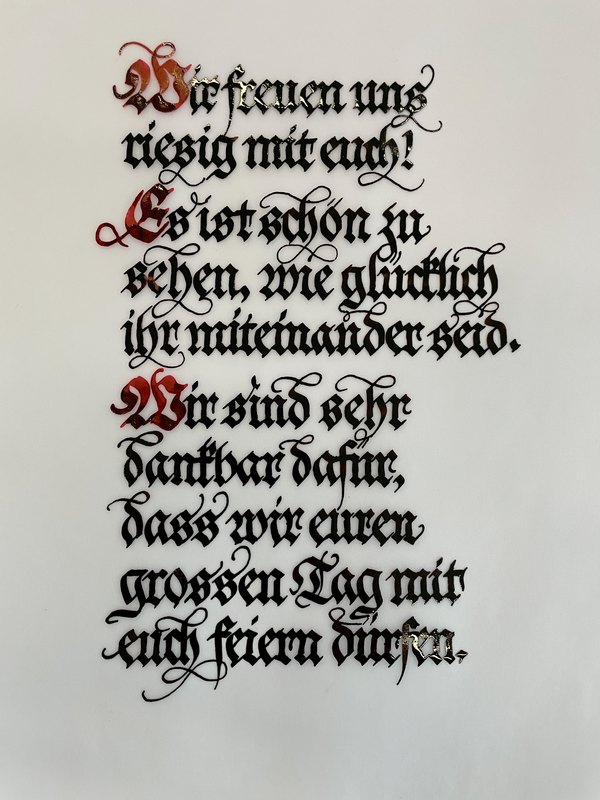 Wir freuen uns
riesig mit euch!
Es ist schön zu
sehen, wie glücklich
ihr miteinander seid.
Wir sind sehr
dankbar dafür,
dass wir euren
grossen Tag mit
euch feiern dürfen.